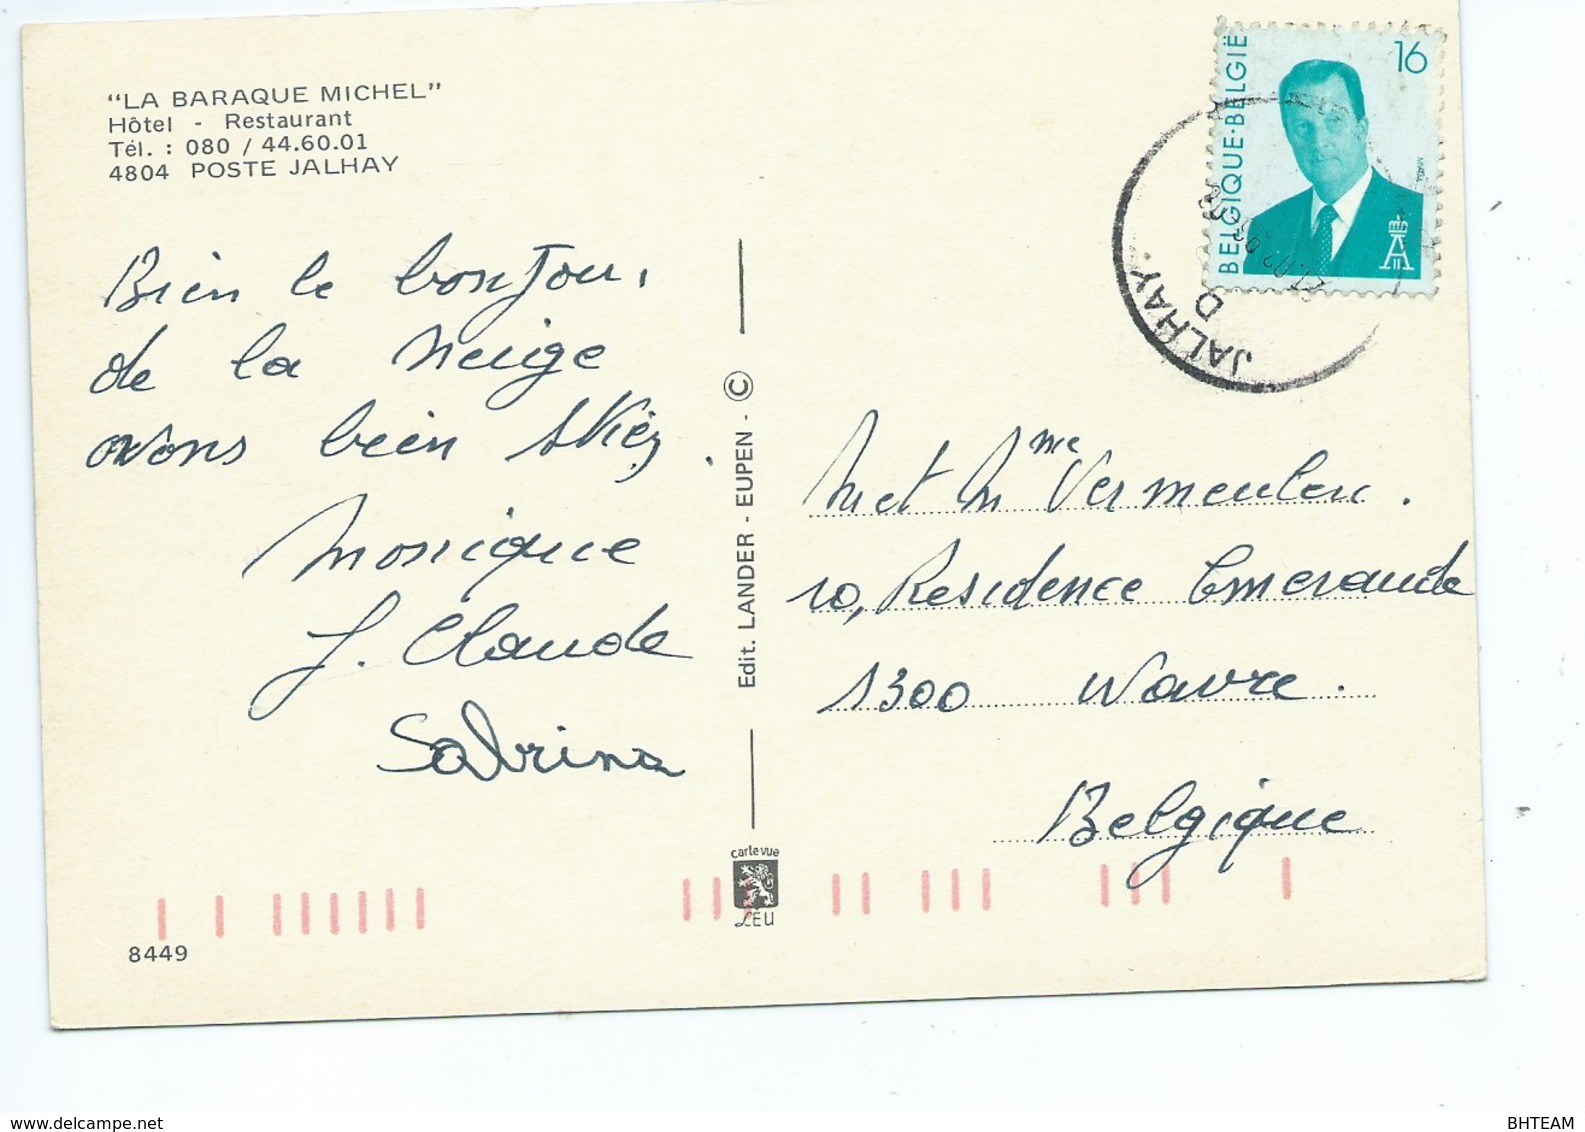 "LA BARAQUE MICHEL"
Hôtel - Restaurant
Tél. : 080 / 44.60.01
4804 POSTE JALHAY
Bien le bonjour
de la neige
avons bien skiéz.
Monique
J. Claude
Sabrina
8449
Edit. LANDER - EUPEN - ©
carte vue
LÉU
BELGIQUE·BELGIË
16
JALHAY
D
M et Mme Vermeulen.
10, Residence Emeraude
1300 Wavre.
Belgique
www.delcampe.net
BHTEAM